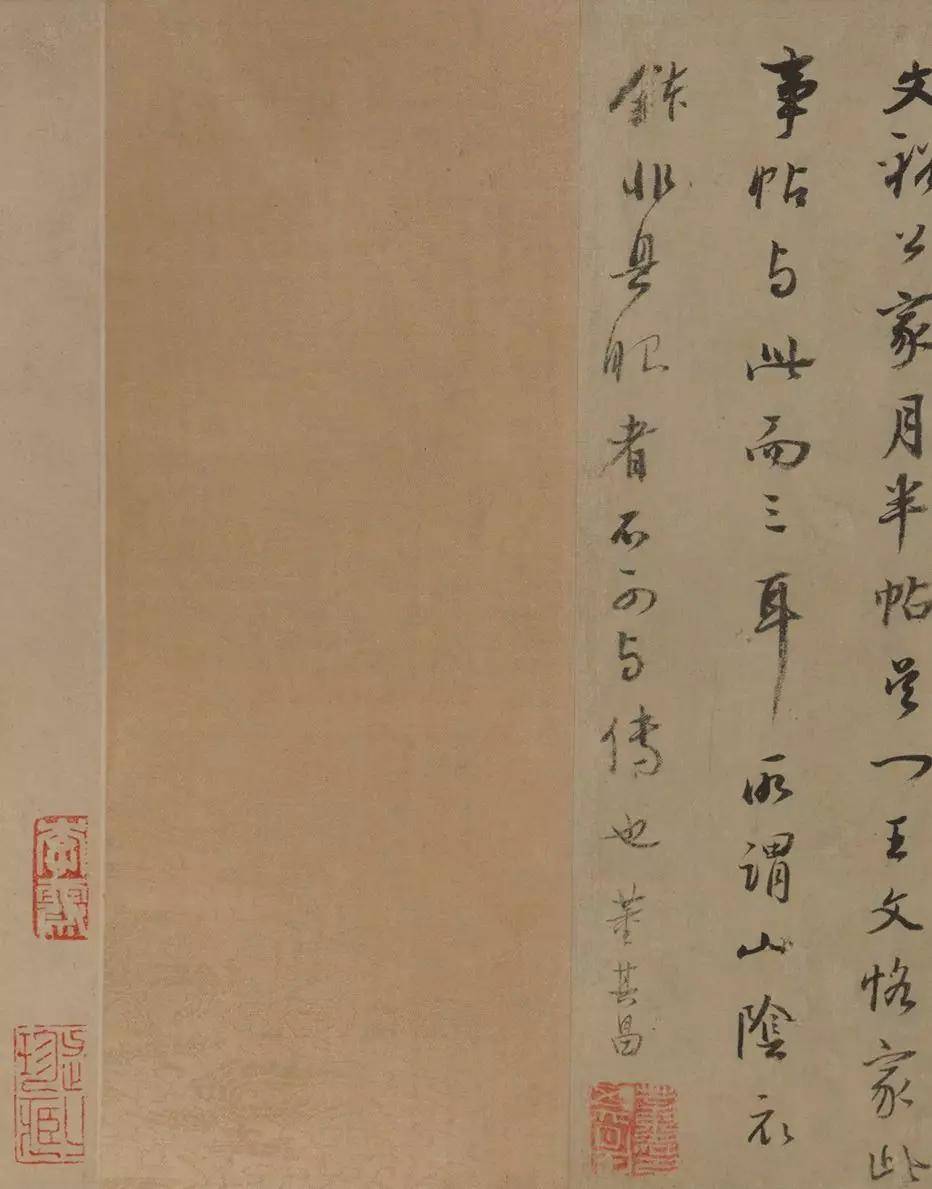 文公家月半帖吳门王文恪家此
事帖与此而三耳所謂山陰衣
鉢非具眼者不可与傳也董其昌